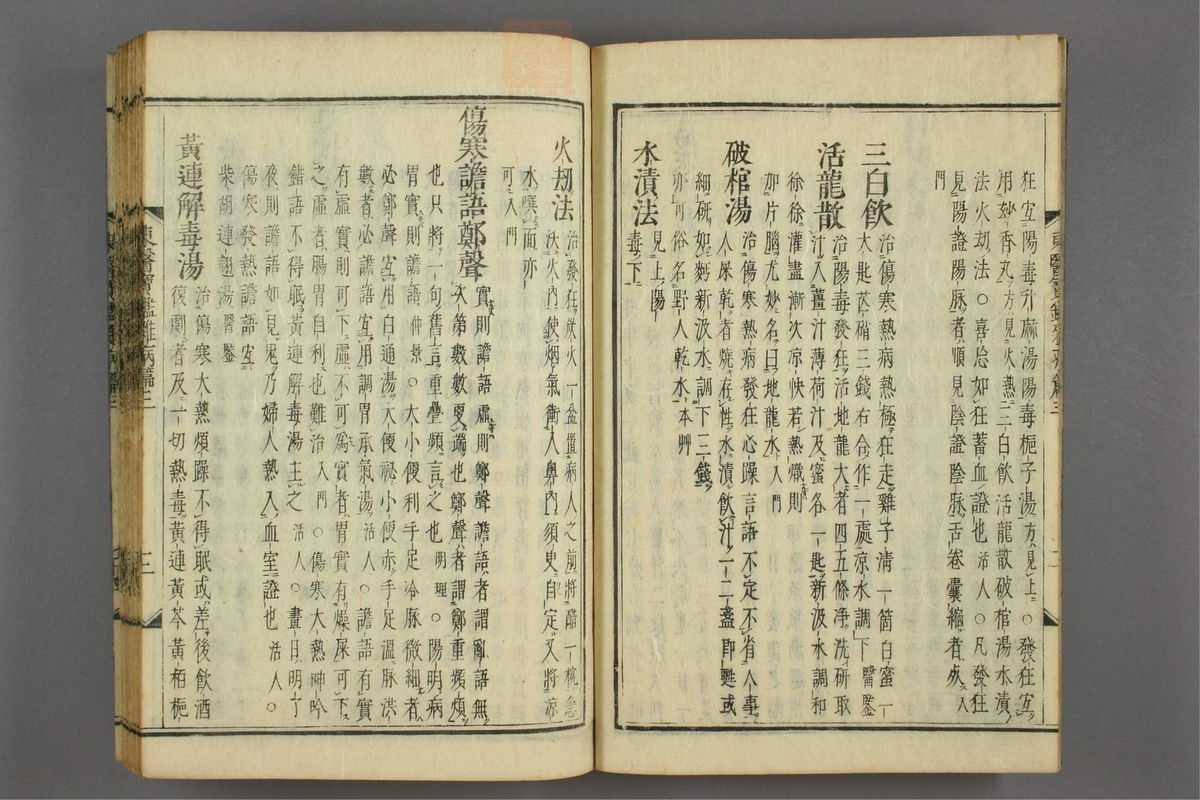 狂宜陽毒升麻湯陽毒梔子湯方見上○發狂宜
用妙香丸方見火熱三白飲活龍散破棺湯水漬
法火劫法○喜忘如狂蓄血證也活人○凡發狂
見陽證陽脉者順見陰證陰脉舌卷囊縮者死入
門
三白飲 治傷寒熱病熱極狂走雞子清一箇白蜜一
大匙芒硝三錢右合作一處凉水調下醫鑒
活龍散 治陽毒發狂活地龍大者四五條淨洗研取
汁入薑汁薄荷汁及蜜各一匙新汲水調和
徐徐灌盡漸次凉快若熱熾則
加片腦尤妙名曰地龍水入門
破棺湯 治傷寒熱病發狂心躁言語不定不省人事
人屎乾者燒存性水漬飲汁一二盞即甦或
細研如麪新汲水調下三錢
亦可俗名野人乾水本草
水漬法 見上陽
毒下
火劫法 治發狂放火一盆置病人之前將醋一椀急
沃火內使烟氣衝入鼻內須臾自定又將凉
水噀面亦
可入門
傷寒譫語鄭聲 實則譫語虛則鄭聲譫語者謂亂語無
次第數數更端也鄭聲者謂鄭重頻煩
也只將一句舊言重疊頻言之也明理○陽明病
胃實則譫語仲景○大小便利手足冷脉微細者
必鄭聲宜用白通湯大便祕小便赤手足溫脉洪
數者必譫語宜用調胃承氣湯活人○譫語有實
有虛實則可下虛不可爲實者胃實有燥屎可下
之虛者腸胃自利也難治入門○傷寒大熱呻吟
錯語不得眠黃連解毒湯主之活人○晝日明了
夜則譫語如見鬼乃婦人熱入血室證也活人○
傷寒發熱譫語宜
柴胡連翹湯醫鑒
黃連解毒湯 治傷寒大熱煩躁不得眠或差後飲酒
復劇者及一切熱毒黃連黃芩黃栢梔